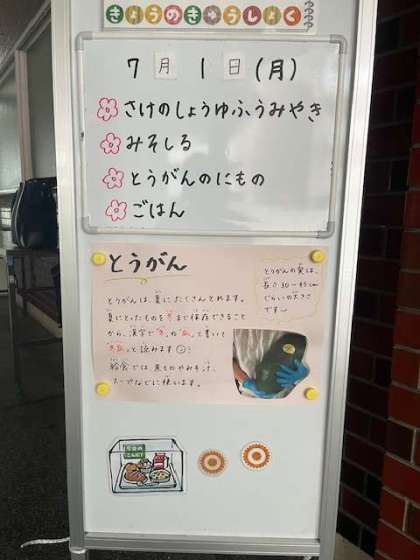 きょうのきゅうしょく
7月1日(月)
さけのしょうゆふうみやき
みそしる
とうがんのにもの
ごはん
とうがん
とうがんは、夏にたくさんとれます。
夏にとったものを冬まで保存できること
から、漢字で"冬"の"瓜"と書いて
"冬瓜"と読みます
給食では、煮ものやみそ汁、
スープなどに使います。
とうがんの実は、
長さ30~45cm
ぐらいの大きさ
です
今日の
こんだて